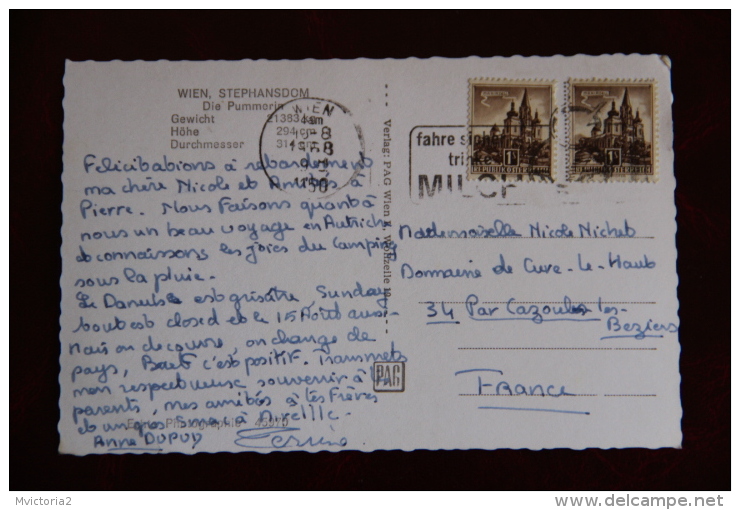 WIEN, STEPHANSDOM
Die Pummerin
Gewicht 21383 kg
Höhe 294 cm
Durchmesser 314
WIEN
1150
fahre sicher
trinke
MILCH
REPUBLIK ÖSTERREICH
REPUBLIK ÖSTERREICH
Felicitations à retardement
ma chère Nicole et Amitiés à
Pierre. Nous Faisons quant à
nous un beau voyage en Autriche
et connaissons les joies du Camping
sous la pluie.
Le Danube est grisâtre, Sunday
tout est closed et le 15 Août aussi
Mais on découvre, on change de
pays, Bref c'est positif. Transmets
mon respectueux souvenir à tes
parents, mes amitiés à tes Frères
et un gros à Mireille.
Anne DUPUY
Echte Photographie
Verlag: PAG Wien Wollzeile
PAG
Mademoiselle Nicole
Domaine de Cure-Le-Haut
34 Par Cazouls-les-
Beziers
FRANCE
Mvictoria2
http://www.delcampe.net